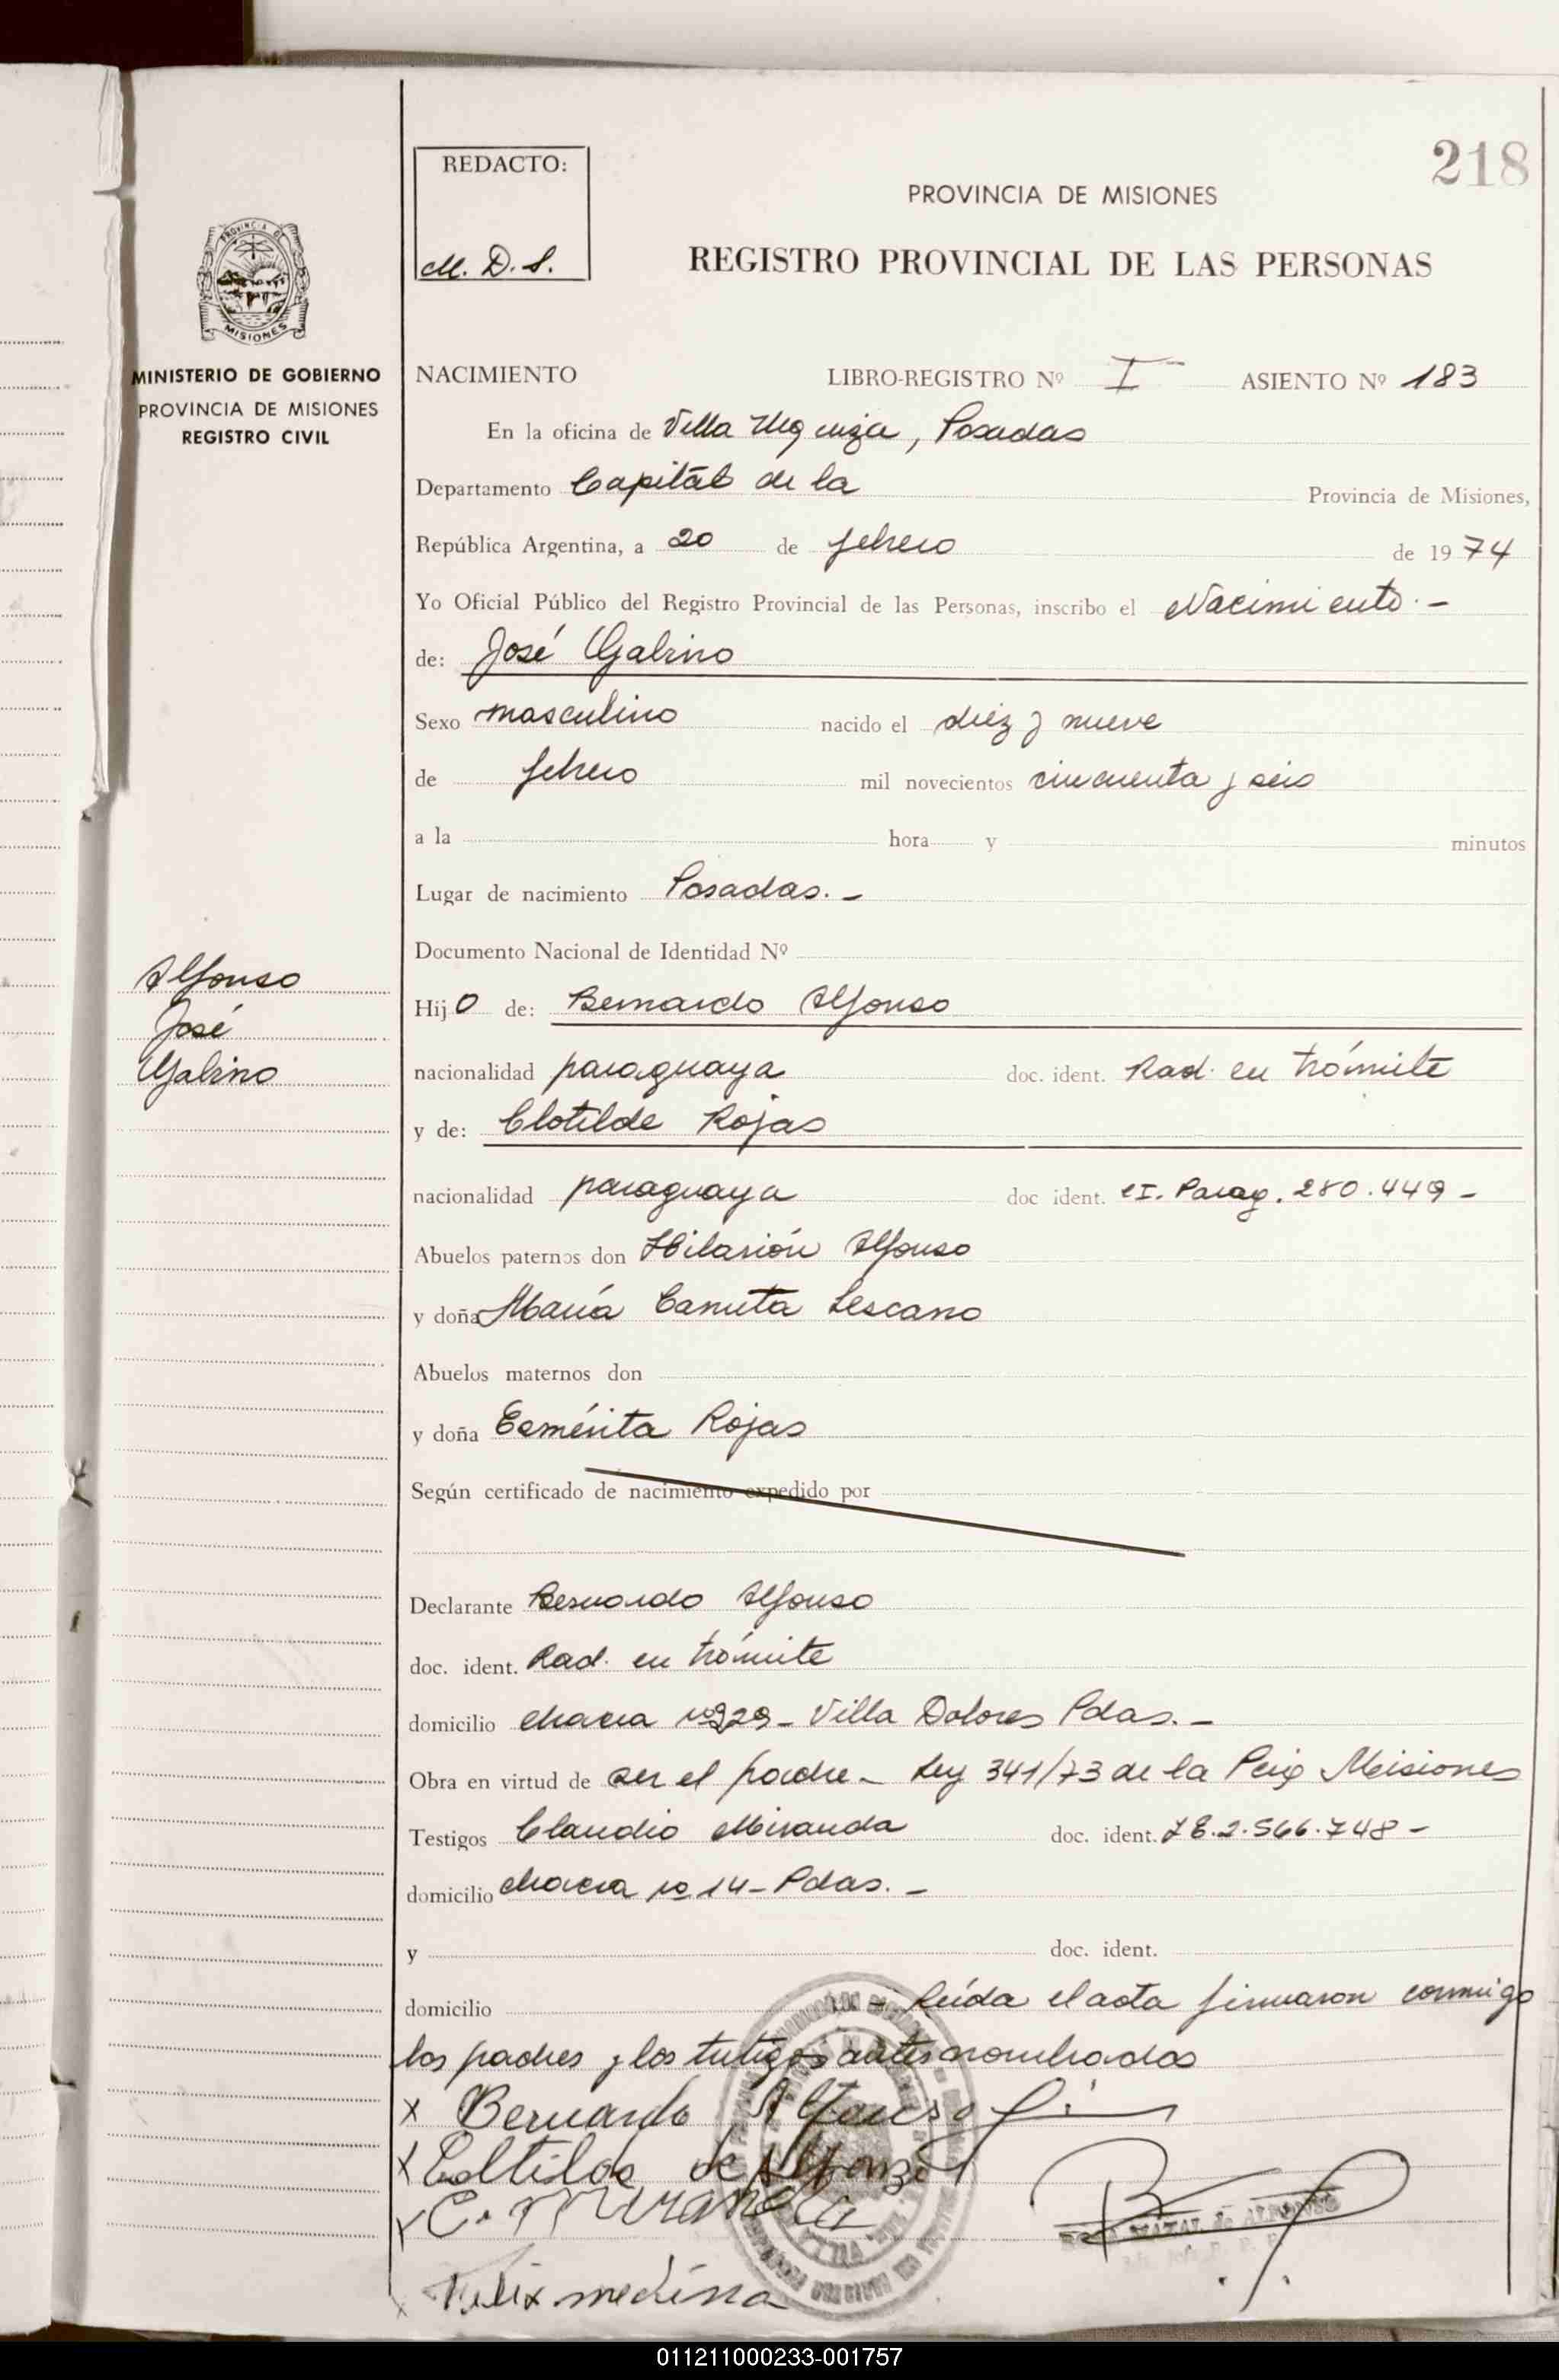 218
REDACTO:
M. D. S.
PROVINCIA DE MISIONES
REGISTRO PROVINCIAL DE LAS PERSONAS
PROVINCIA DE
MISIONES
MINISTERIO DE GOBIERNO
PROVINCIA DE MISIONES
REGISTRO CIVIL
NACIMIENTO LIBRO-REGISTRO Nº I - ASIENTO Nº 183
En la oficina de Villa Urquiza, Posadas
Departamento Capital de la Provincia de Misiones,
República Argentina, a 20 de febrero de 1974
Yo Oficial Público del Registro Provincial de las Personas, inscribo el Nacimiento.-
de: José Gabino
Sexo masculino nacido el diez y nueve
de febrero mil novecientos cincuenta y seis
a la hora y minutos
Lugar de nacimiento Posadas.-
Documento Nacional de Identidad Nº
Alfonso
José
Gabino
Hijo de: Bernardo Alfonso
nacionalidad paraguaya doc. ident. Rad. en trámite
y de: Clotilde Rojas
nacionalidad paraguaya doc ident. CI. Parag. 280.449-
Abuelos paternos don Hilarión Alfonso
y doña María Canuta Lescano
Abuelos maternos don
y doña Esmérita Rojas
Según certificado de nacimiento expedido por
Declarante Bernardo Alfonso
doc. ident. Rad. en trámite
domicilio chacra Villa Dolores Pdas.-
Obra en virtud de ser el padre- Ley 341/73 de la Misiones
Testigos Claudio Miranda doc. ident. 2.566.748-
domicilio chacra nº 14- Pdas.-
y doc. ident.
domicilio - Leída el acta firmaron conmigo
los padres y los testigos antes nombrados
x Bernardo Alfonso
x de Alfonzo
x C. Miranda
x Felix medina
011211000233-001757